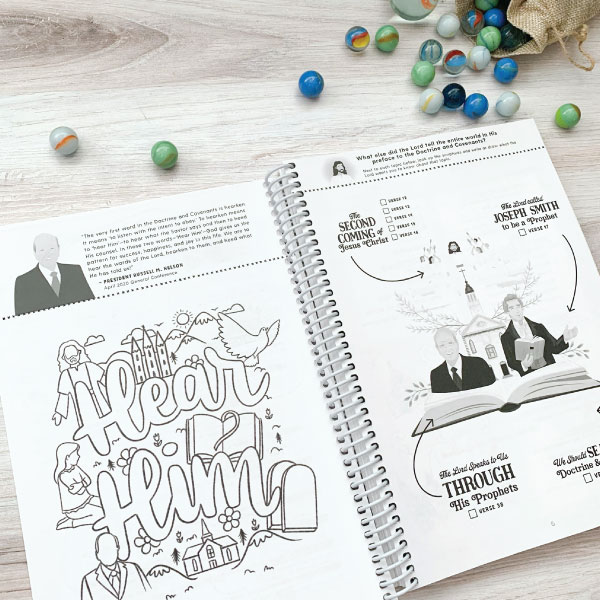 "The very first word in the Doctrine and Covenants is hearken
It means 'to listen with the intent to obey.' To hearken means
to 'hear Him'—to hear what the Savior says and then to heed
His counsel. In those two words—'Hear Him'—God gives us the
pattern for success, happiness, and joy in this life. We are to
hear the words of the Lord, hearken to them, and heed what
He has told us!"
- PRESIDENT RUSSELL M. NELSON
April 2020 General Conference
Hear
Him
What else did the Lord tell the entire world in His
preface to the Doctrine and Covenants?
The
SECOND
COMING of
Jesus Christ
VERSE 12
VERSE 13
VERSE 14
VERSE 15
VERSE 16
The Lord called
JOSEPH SMITH
to be a Prophet
VERSE 17
The Lord Speaks to Us
THROUGH
His Prophets
VERSE 38
We Should
Doctrine &